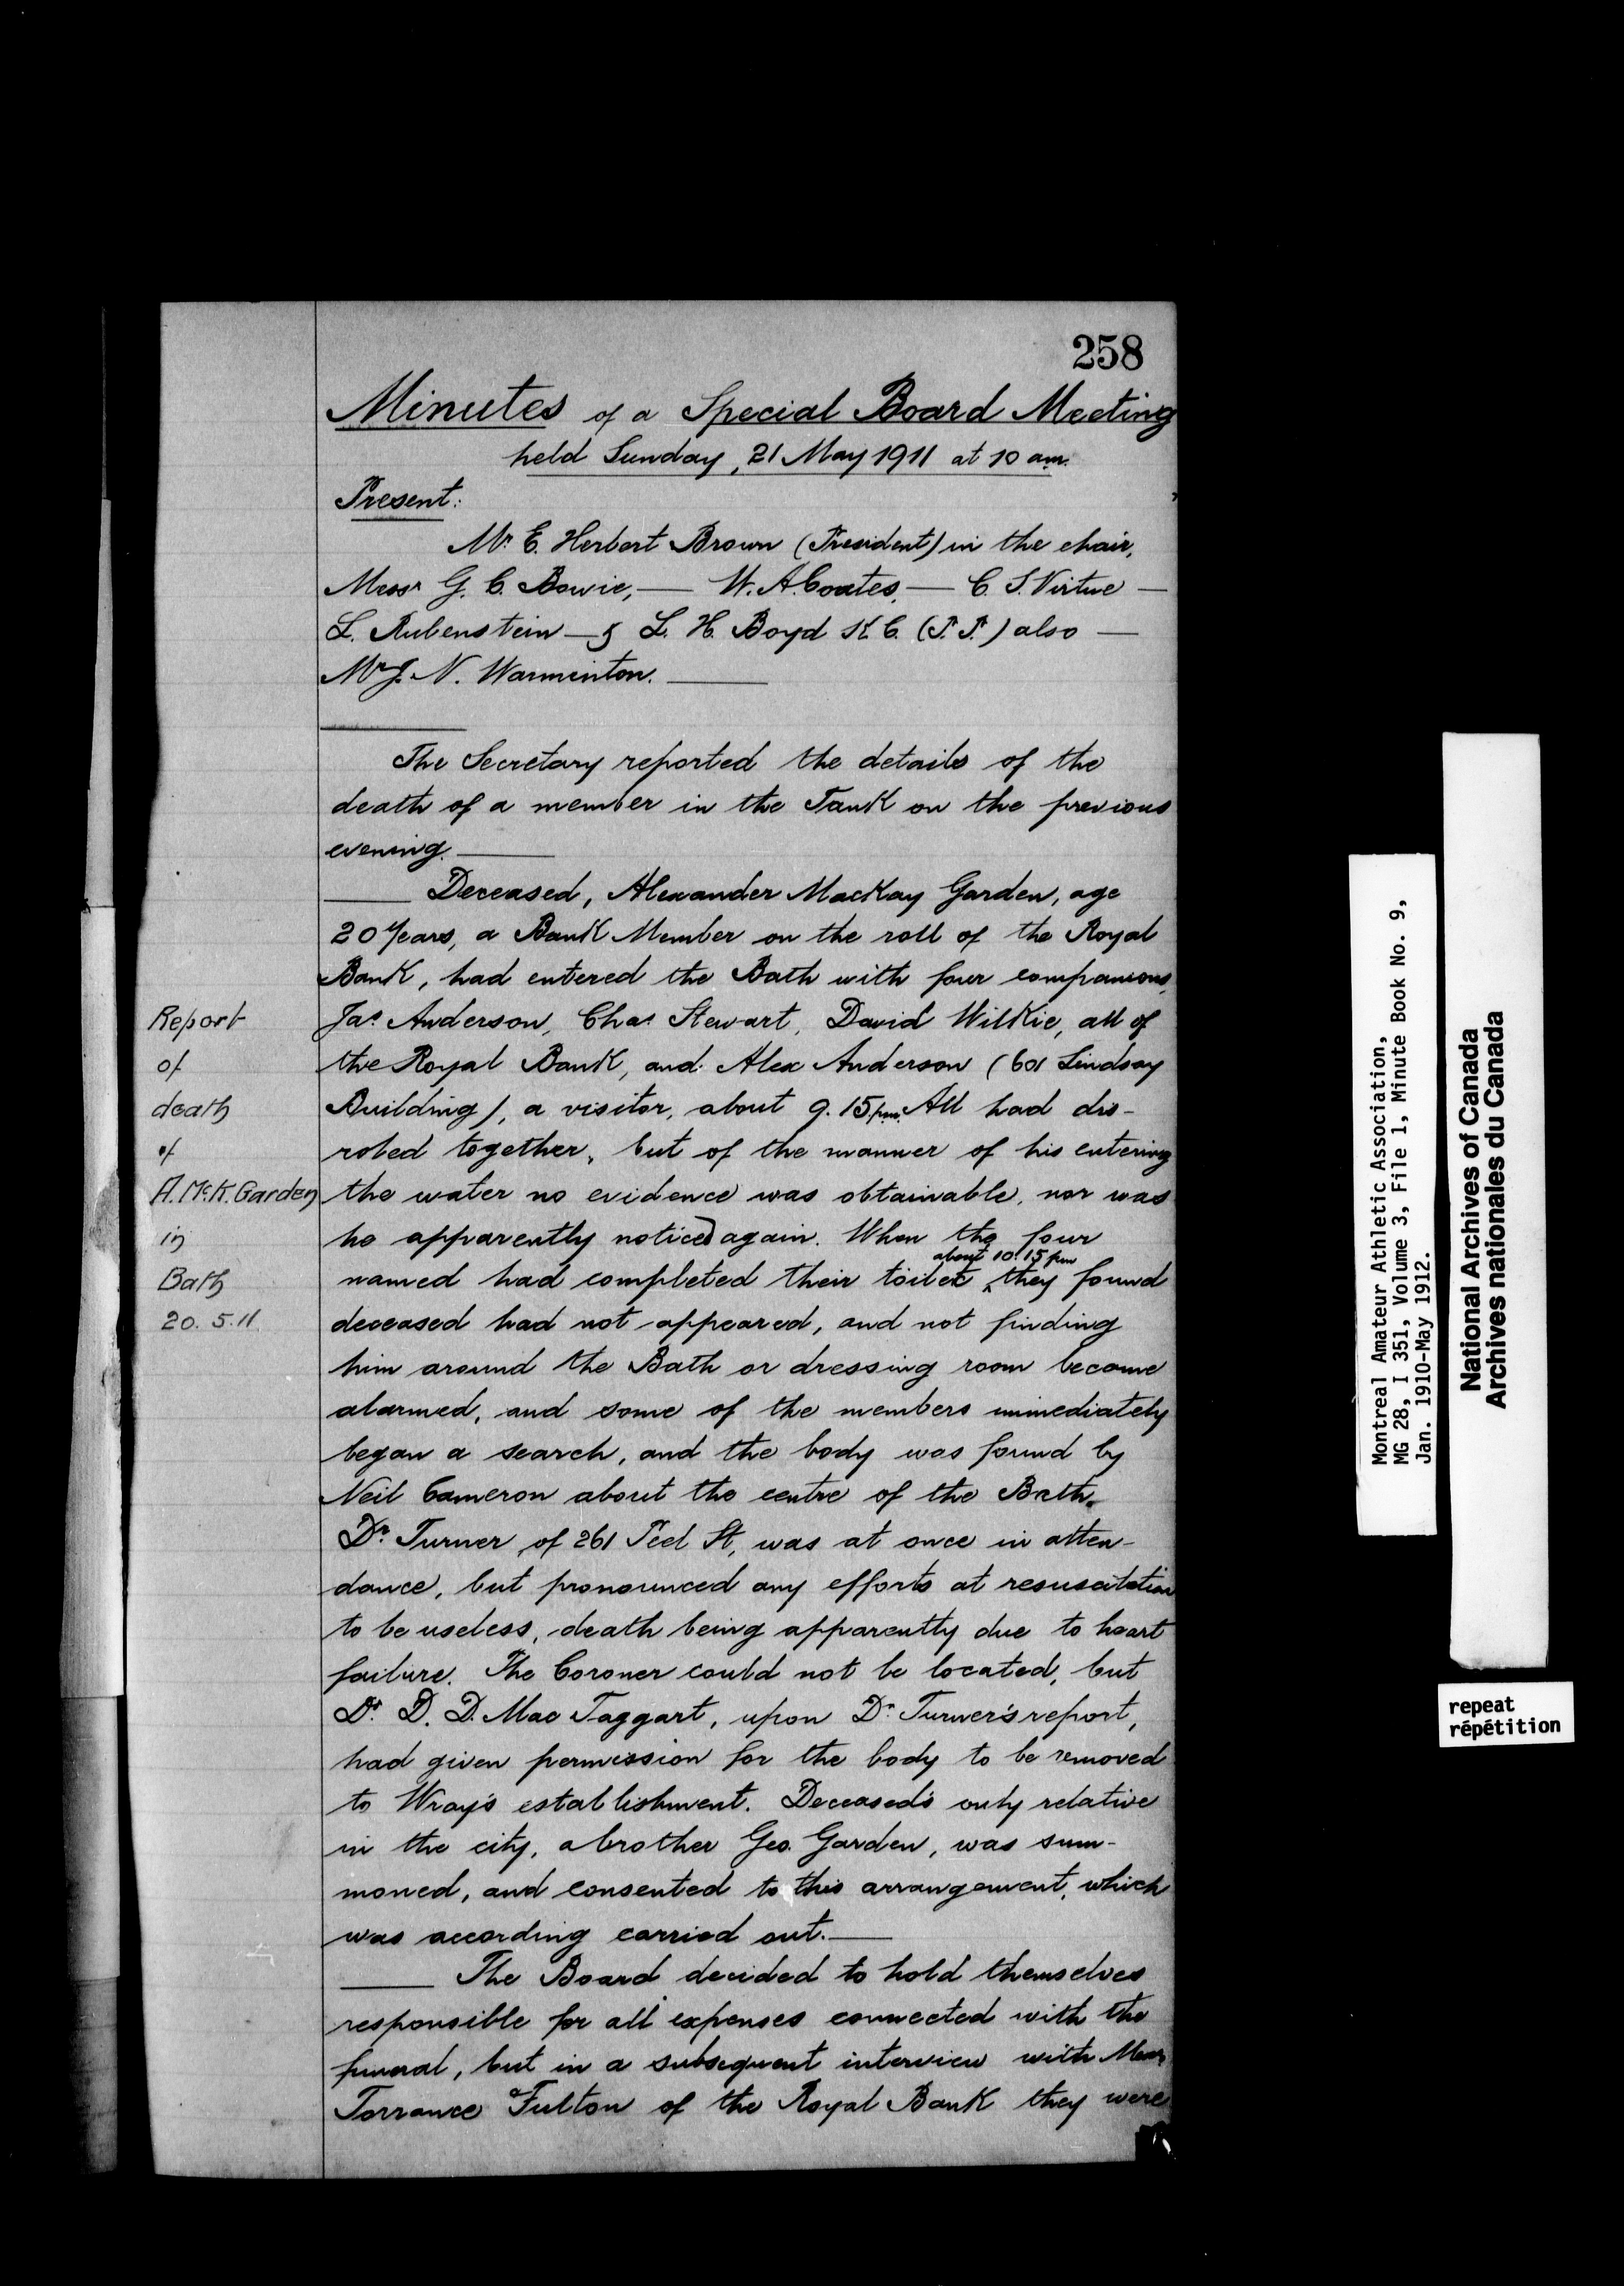 258
Minutes of a Special Board Meeting
held Sunday, 21 May 1911 at 10 am.
Present:
Mr. E. Herbert Brown (President) in the chair,
Messrs G. C. Bowie, — W. A. Coates, — C. S. Virtue —
L. Rubenstein — & L. H. Boyd K.C. (P. P.) also —
Mr J. N. Warminton. —
The Secretary reported the details of the
death of a member in the Tank on the previous
evening. —
— Deceased, Alexander MacKay Garden, age
20 Years, a Bank Member on the roll of the Royal
Bank, had entered the Bath with four companions,
Jas. Anderson, Chas. Stewart, David Wilkie, all of
the Royal Bank, and Alex Anderson (601 Lindsay
Building), a visitor, about 9.15 p.m. All had dis-
robed together, but of the manner of his entering
the water no evidence was obtainable, nor was
he apparently noticed again. When the four
about 10.15 pm
named had completed their toilet ^ they found
deceased had not appeared, and not finding
him around the Bath or dressing room became
alarmed, and some of the members immediately
began a search, and the body was found by
Neil Cameron about the centre of the Bath.
Dr. Turner of 261 Peel St, was at once in atten-
dance, but pronounced any efforts at resuscitation
to be useless, death being apparently due to heart
failure. The Coroner could not be located, but
Dr. D. D. Mac Taggart, upon Dr. Turner's report,
had given permission for the body to be removed
to Wray's establishment. Deceased's only relative
in the city, a brother Geo. Garden, was sum-
moned, and consented to this arrangement, which
was according carried out. —
— The Board decided to hold themselves
responsible for all expenses connected with the
funeral, but in a subsequent interview with Messrs
Torrance & Fulton of the Royal Bank they were
Report
of
death
of
A. McK. Garden
in
Bath
20. 5. 11.
Montreal Amateur Athletic Association,
MG 28, I 351, Volume 3, File 1, Minute Book No. 9,
Jan. 1910-May 1912.
National Archives of Canada
Archives nationales du Canada
repeat
répétition